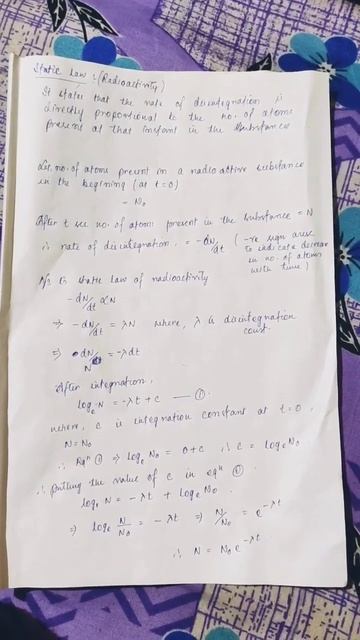 Static Law : (Radioactivity)
It states that the rate of disintegration is
directly proportional to the no. of atoms
present at that instant in the substance
Let no. of atoms present in a radioactive substance
in the begining (at t=0)
- N₀
After t sec no. of atoms present in the substance = N
∴ rate of disintegration = -dN/dt ( -ve sign arise
to indicate decrease
in no. of atoms
with time )
static law of radioactivity
-dN/dt ∝ N
⇒ -dN/dt = λN where, λ is disintegration
const.
⇒ dN/N = -λdt
After integration,
logₑ N = -λt + c — ①
where, c is integration constant at t=0,
N = N₀
∴ Eqⁿ ① ⇒ logₑ N₀ = 0+c ∴ c = logₑ N₀
∴ Putting the value of c in eqⁿ ①
logₑ N = -λt + logₑ N₀
⇒ logₑ N/N₀ = -λt ⇒ N/N₀ = e^-λt
∴ N = N₀ e^-λt